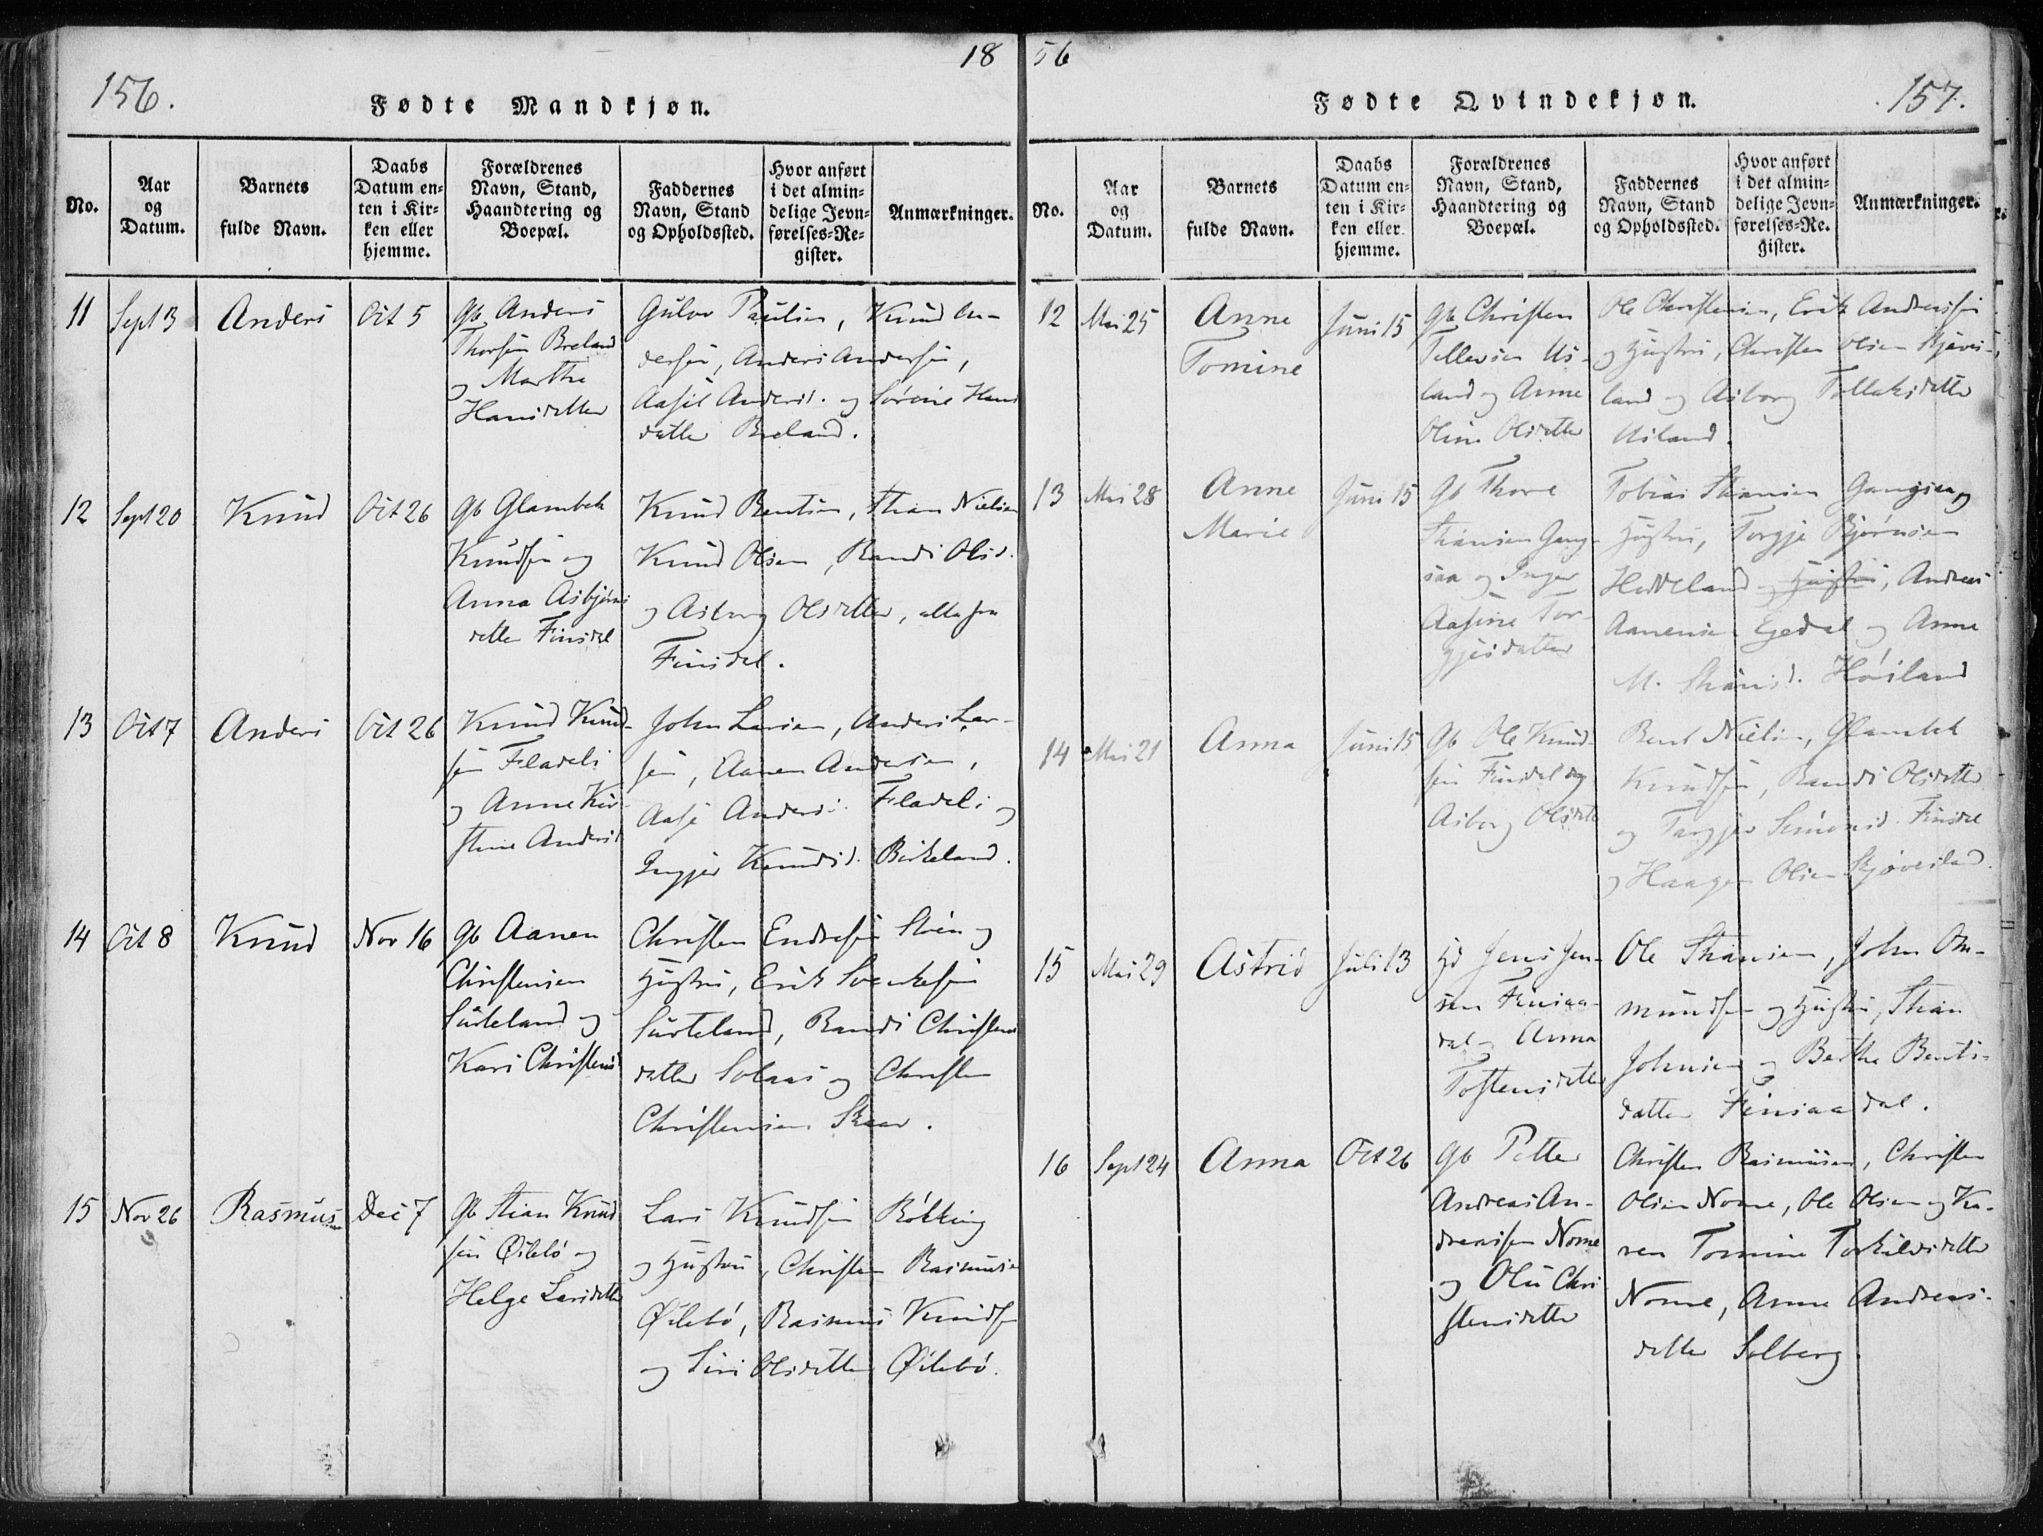 18
156.
Fødte Mandkjøn.
No.
Aar
og
Datum.
Barnets
fulde Navn.
Daabs
Datum en-
ten i Kir-
ken eller
hjemme.
Forældrenes
Navn, Stand,
Haandtering og
Boepæl.
Faddernes
Navn, Stand
og Opholdssted.
Hvor anført
i det almin-
delige Jevn-
førelses-Re-
gister.
Anmærkninger.
11
Sept 3
Anders
Oct 5
Gb Anders
Thorsen Breland
og Marthe
Hansdatter
Gulov Paulsen, Knud An-
dersen, Anders Andersen,
Aasil Andersd. og Sørine Hans
datter Breland.
12
Sept 20
Knud
Oct 26
Gb Glambek
Knudsen og
Anna Asbjørns
datter Finsdal
Knud Bentsen, Stian Nielsen
Knud Olsen, Randi Olsd.
og Asborg Olsdatter, alle fra
Finsdal.
13
Oct 7
Anders
Oct 26
Knud Knud-
sen Fladeli
og Anne Kir-
stine Andersd
John Larsen, Anders Lar-
sen, Aanen Andersen,
Aase Anders. Fladeli og
Ingjer Knudsd. Birkeland.
14
Oct 8
Knud
Nov 16
Gb Aanen
Christensen
Surteland og
Kari Christensd
Christen Endresen Stien og
Hustru, Erik Svenkesen
Surteland, Randi Christens
datter Solaas og Christen
Christensen Skaar.
15
Nov 26
Rasmus
Dec 7
Gb Stian Knud
sen Øilebø og
Helge Larsdatter
Lars Knudsen Røkking
og Hustru, Christen Rasmussen
Øilebø, Rasmus Knudsen
og Siri Olsdatter Øilebø.
56
157.
Fødte Qvindekjøn.
No.
Aar
og
Datum.
Barnets
fulde Navn.
Daabs
Datum en-
ten i Kir-
ken eller
hjemme.
Forældrenes
Navn, Stand,
Haandtering og
Boepæl.
Faddernes
Navn, Stand
og Opholdssted.
Hvor anført
i det almin-
delige Jevn-
førelses-Re-
gister.
Anmærkninger.
12
Mai 25
Anne
Tomine
Juni 15
Gb Christen
Tellevsen Us-
land og Anne
Oline Olsdatter
Ole Christensen, Erik Andreassen
og Hustru, Christen Olsen Skjæves-
land og Asborg Tellefsdatter
Usland.
13
Mai 28
Anne
Marie
Juni 15
Gb Thore
Stiansen Gang-
saa og Inger
Aasine Tor-
gjesdatter
Tobias Stiansen Gangsaa og
Hustru, Torgje Bjørnsen
Heddeland og Hustru, Andreas
Aanensen Egedal og Anne
M. Stiansd. Høiland
14
Mai 21
Anna
Juni 15
Gb Ole Knud-
sen Finsdal og
Asborg Olsdatt
Bent Nielsen, Glambek
Knudsen, Randi Olsdatter
og Targjer Simonsd. Finsdal
og Haagen Olsen Skjøvesland.
15
Mai 29
Astrid
Juli 13
Hd Jens Jen-
sen Finsaa-
dal og Anna
Tostensdatter
Ole Stiansen, John Om-
mundsen og Hustru, Stian
Johnsen og Berthe Bents-
datter Finsaadal.
16
Sept 24
Anna
Oct 26
Gb Petter
Andreas An-
dreassen Nome
og Olu Chri
stensdatter
Christen Rasmussen, Christen
Olsen Nome, Ole Olsen og Ka-
ren Tomine Torkildsdatter
Nome, Anne Andreas-
datter Solberg.